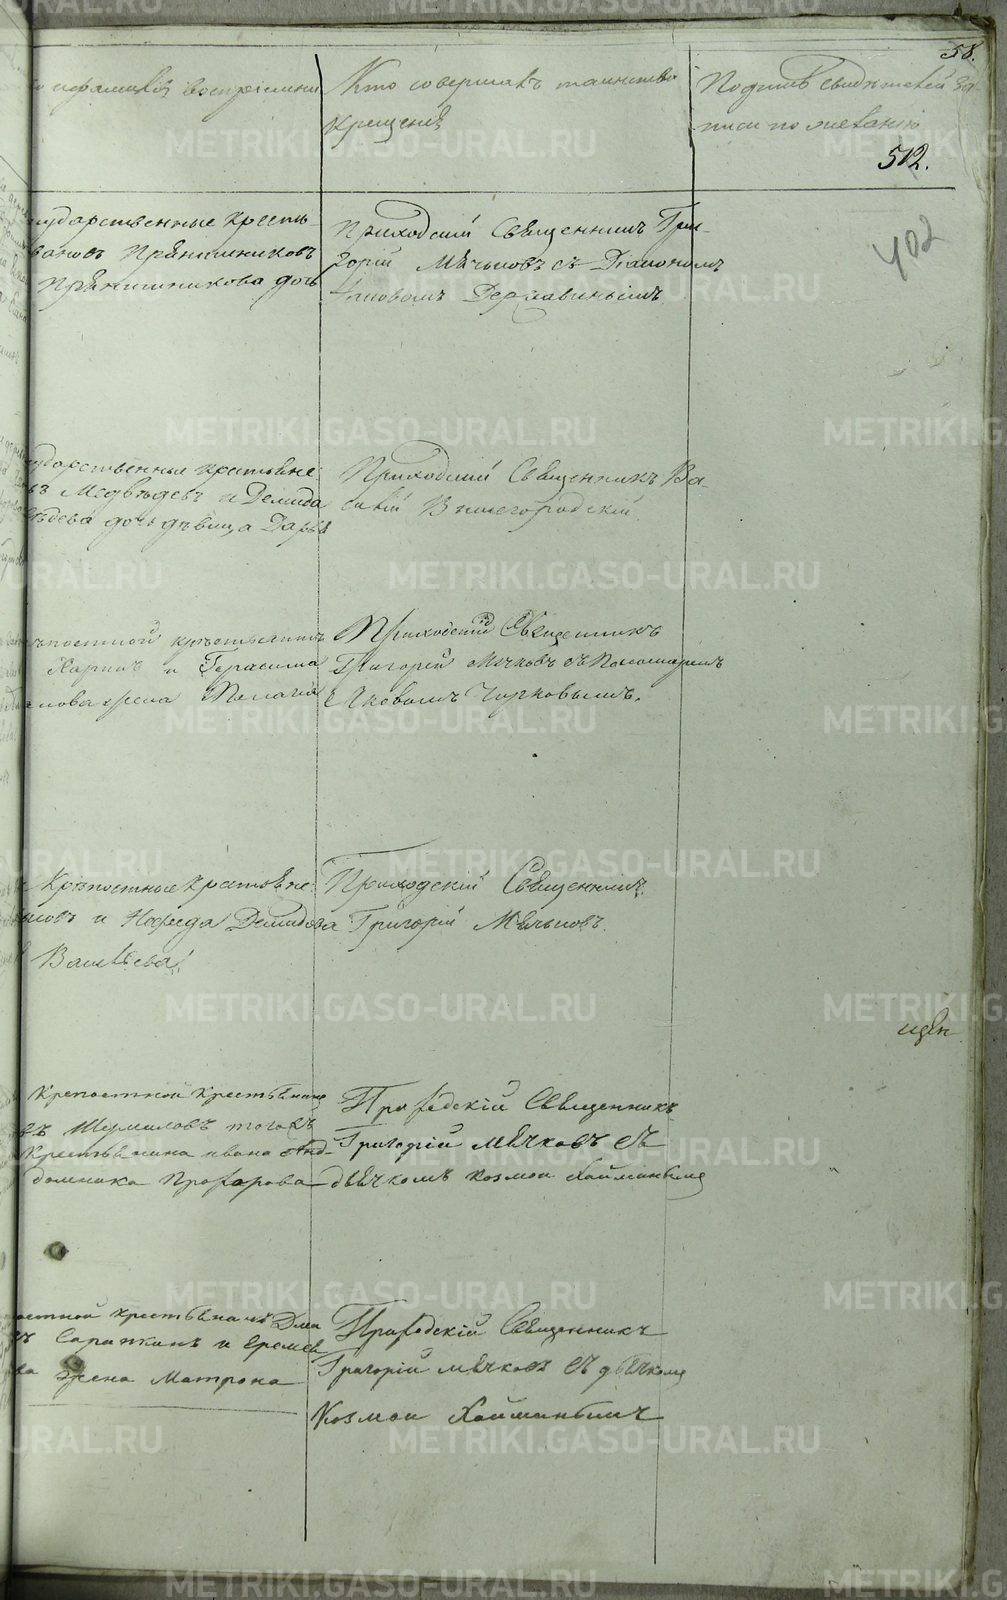 58.
и фамилія воспріемни
Кто совершалъ таинство
крещенія
Подпись свидѣтелей за-
писи по желанію
512.
402
сударственные крестья
вановъ Прянишниковъ
Прянишникова дочь
Приходскій Священникъ Гри-
горій Мячковъ съ Діакономъ
Державинымъ
сударственные крестьяне
въ Медвѣдевъ и Демида
дочь дѣвица Дарья
Приходскій Священникъ Ва
силій Вышегородскій
Харинъ и Герасима
жена Пелагія
Приходскій Священникъ
Григорій Мячковъ съ Пономаремъ
Яковомъ Чирковымъ.
Крѣпостные крестьяне
и Демидова
Васильева
Приходскій Священникъ
Григорій Мячковъ.
щен
Крепостной крестьянинъ
въ Шумиловъ тогожъ
крестьянина ивана Анд-
домника Прохорова
Приходскій Священникъ
Григорій мячковъ съ
дьячкомъ козмои Хайминымъ
остной крестьянинъ Дми
Сарапкинъ и Еремея
ва жена Матрона
Приходскій Священникъ
Григорій мячковъ съ дьячкомъ
Козмои Хайминымъ
METRIKI.GASO-URAL.RU